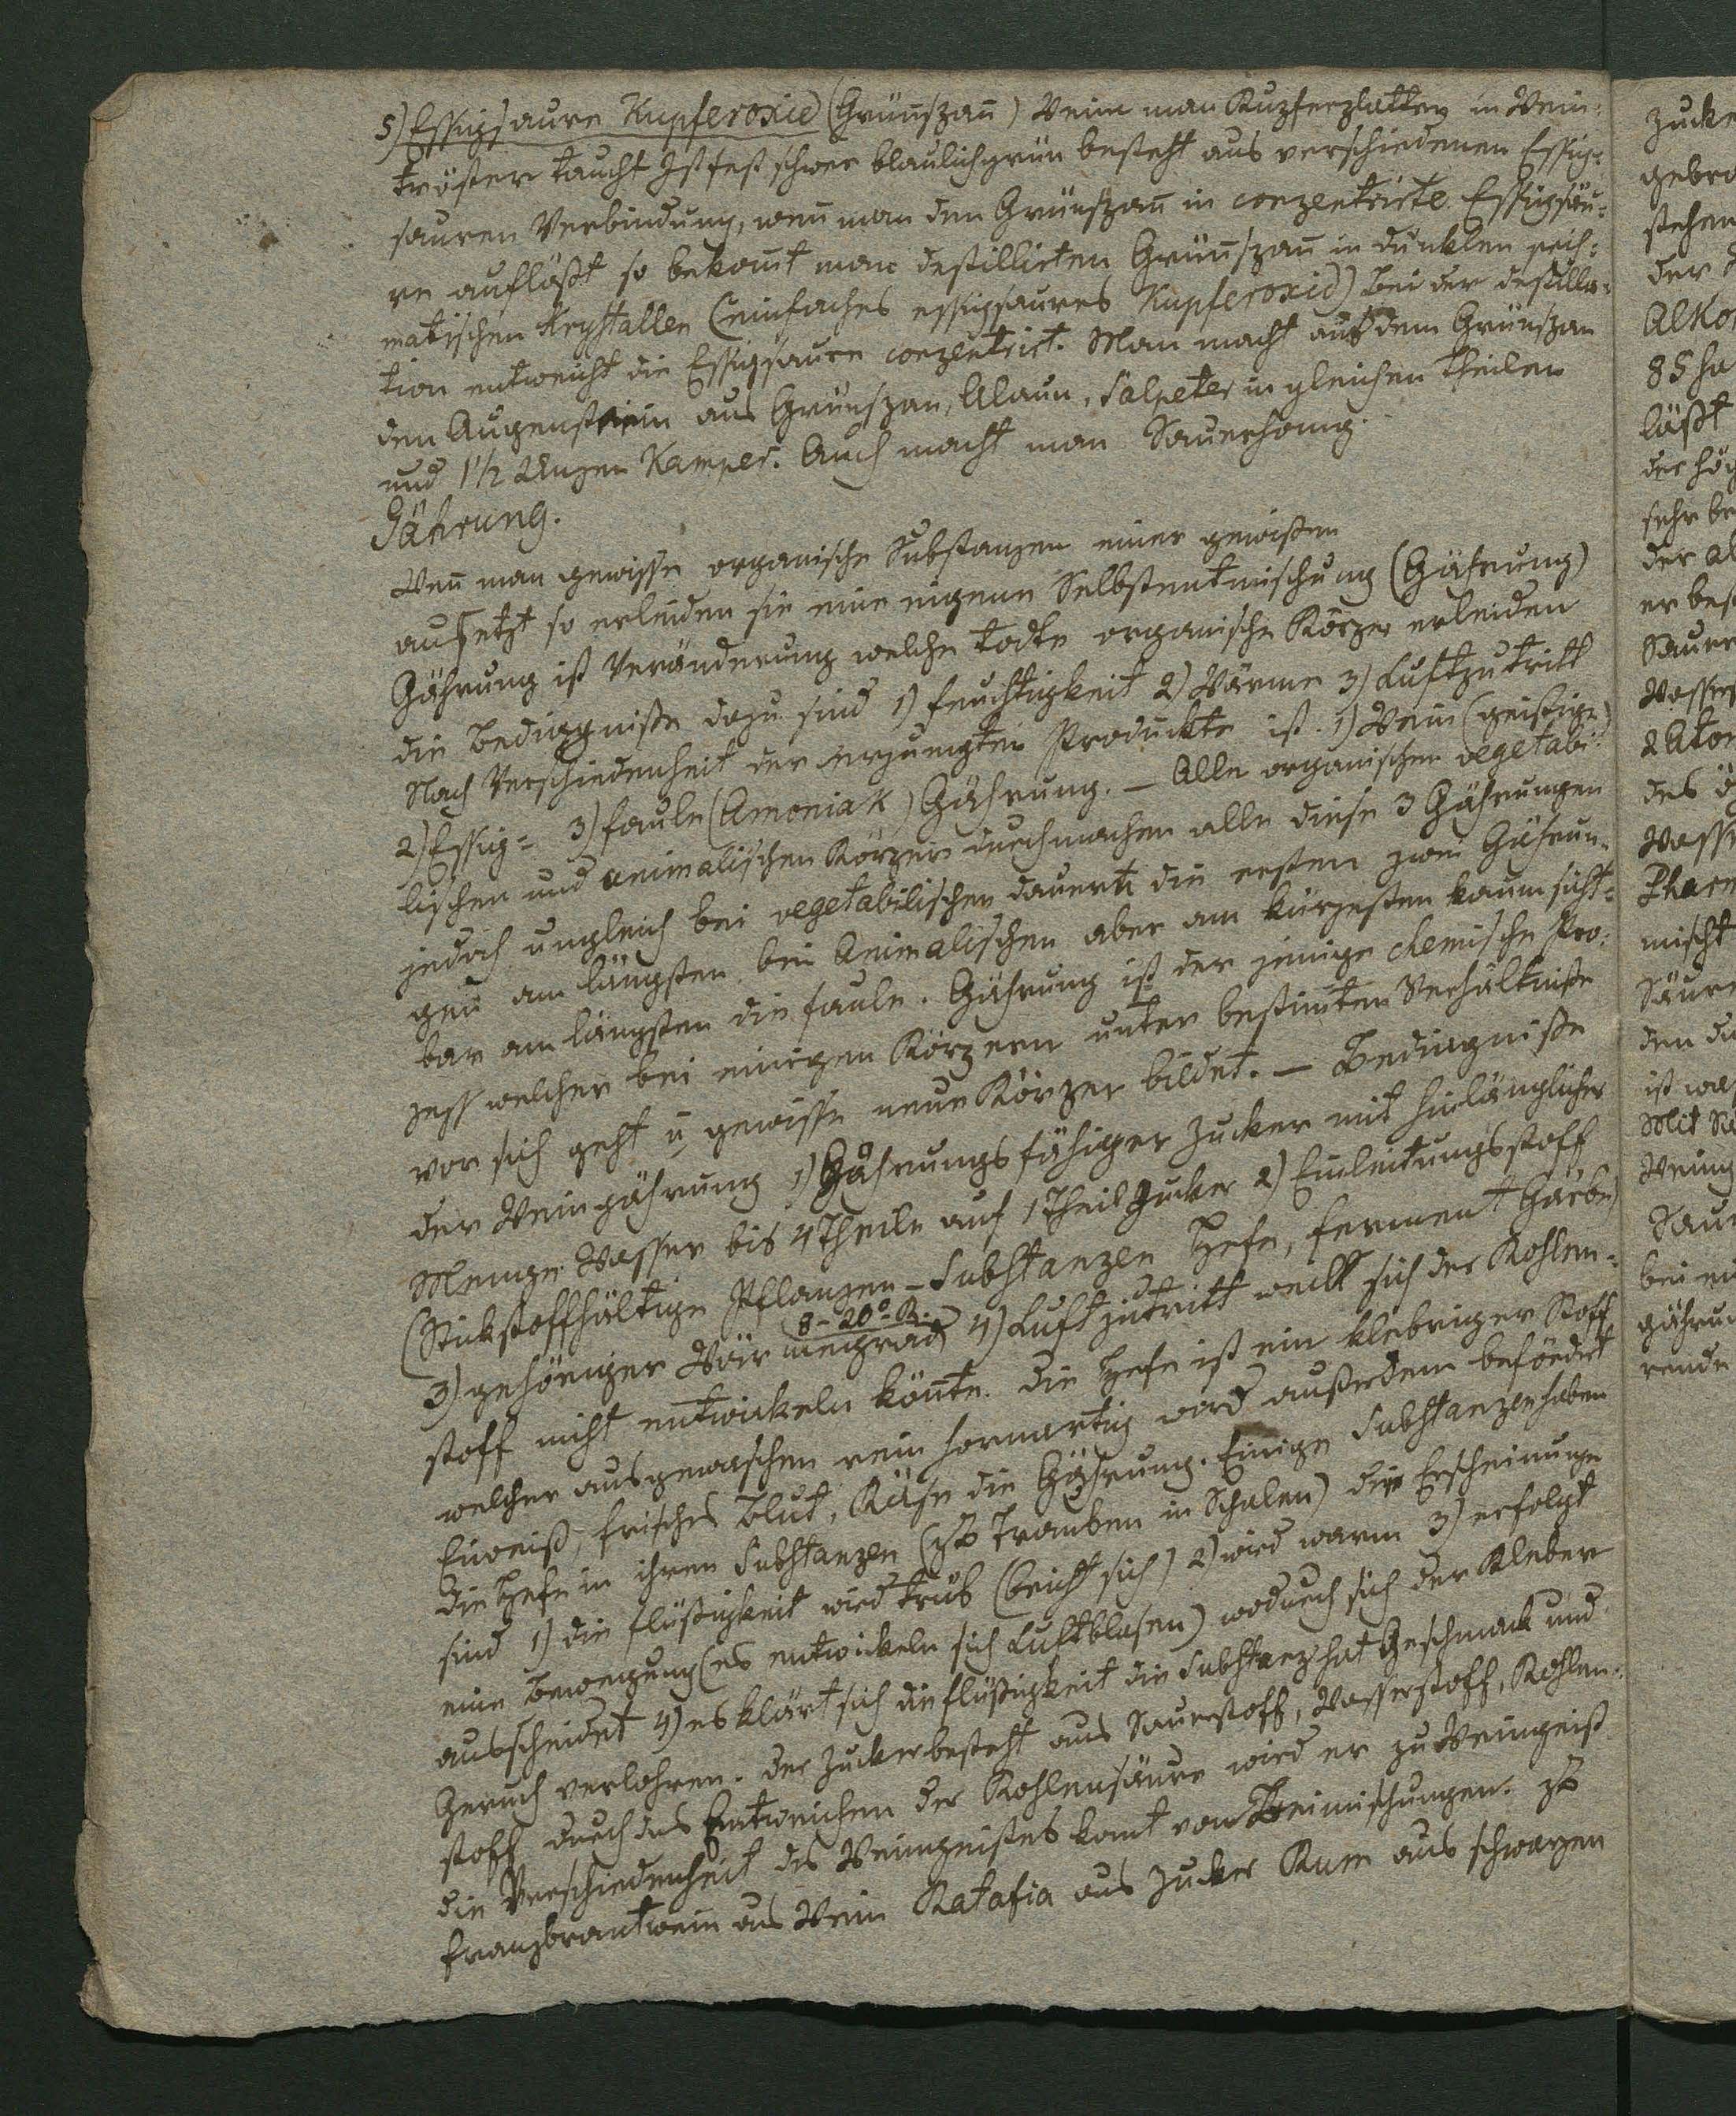 5) Essigsaure Kupferoxid (Grünszpañ) Wenn man Kupferplatten in Wein-
tröster taucht Ist fest schwer blaulichgrün besteht aus verschiedenen Essig-
sauren Verbindung, weñ man den Grünszpañ in conzentrirte Essigsäu-
re auflößt so bekom̄t man destillirten Grünszpañ in dunklen pris-
matischen Krystallen (einfaches essigsaures Kupferoxid) Bei der destilla-
tion entweicht die Essigsaure conzentrirt. Man macht aus dem Grünszpan
den Augenstein aus Grünszpan, Alaun, Salpeter in gleichen Theilen
und 1½ Unzen Kampfer. Auch macht man Sauerhonig.
Gährung.
Weñ man gewisse organische Substanzen einer gewissen
aussetzt so erleiden sie eine eigene Selbstentmischung (Gährung)
Gährung ist Veränderung welche todte organische Körper erleiden
die Bedingnisse dazu sind 1) Feuchtigkeit 2) Wärme 3) Luftzutritt
Nach Verschiedenheit der erzeugten Produkte ist 1) Wein (geistige)
2) Essig= 3) faule (Amoniak) Gährung. – Alle organischen vegetabi-
lischen und animalischen Körper durchmachen alle diese 3 Gährungen
jedoch ungleich bei vegetabilischen dauern die ersten zwei Gährun-
gen am längsten bei Animalischen aber am kürzesten kaum sicht-
bar am längsten die faule. Gährung ist der jenige chemische Pro-
zess welcher bei einigen Körpern unter bestim̄ten Verhältnisse
vor sich geht u gewisse neue Körper bildet. – Bedingnisse
der Weingährung 1) Gährungsfähiger Zucker mit hinlänglicher
Menge Wasser bis 4 Theile auf 1 Theil Zucker 2) Einleitungsstoff
(Stickstoffhältige Pflanzen-Substanzen Hefe, ferment Gärbe)
8–20° R.
3) gehöriger Wärmegrad 4) Luftzutritt weill sich der Kohlen-
stoff nicht entwickeln köñte. Die Hefe ist ein klebriger Stoff
welcher ausgewaschen rein hornartig wird außerdem befördert
Eiweiß, frisches Blut, Käse die Gährung. Einige Substanzen haben
die Hefe in ihren Substanzen (zB Trauben in Schalen) die Erscheinunge
sind 1) die flüßigkeit wird trüb (bricht sich) 2) wird warm 3) erfolgt
eine Bewegung (es entwickeln sich Luftblasen) wodurch sich der Kleber
ausscheidet 4) es klärt sich die flüßigkeit die Substanz hat Geschmack und
Geruch verlohren. der Zucker besteht aus Sauerstoff, Wasserstoff, Kohlen-
stoff durch das Entweichen der Kohlensäure wird er zu Weingeist
die Verschiedenheit des Weingeistes komt von Beimischungen. zB
Franzbrantwein aus Wein Ratafia aus Zucker Rum aus schwarzen